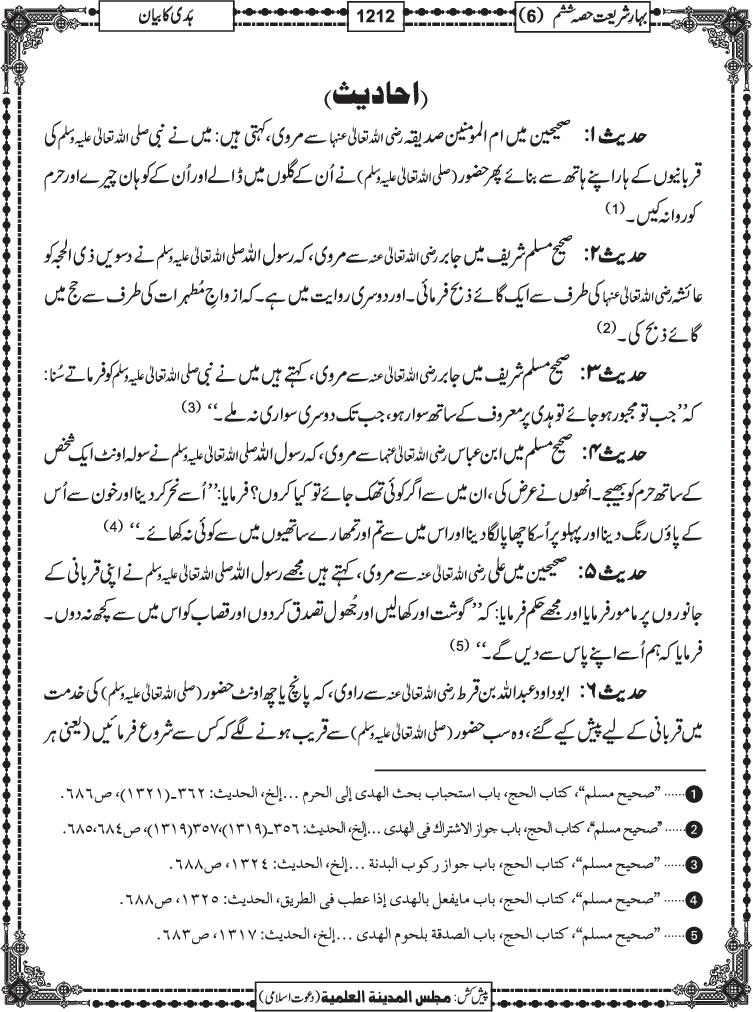 بہارِ شریعت حصہ ششم (6)
1212
ہَدی کا بیان
(احادیث)
حدیث ۱: صحیحین میں ام المومنین صدیقہ رضی اللہ تعالیٰ عنہا سے مروی، کہتی ہیں: میں نے نبی صلی اللہ تعالیٰ علیہ وسلم کی
قربانیوں کے ہار اپنے ہاتھ سے بنائے پھر حضور (صلی اللہ تعالیٰ علیہ وسلم) نے اُن کے گلوں میں ڈالے اور اُن کے کوہان چیرے اور حرم
کو روانہ کیں۔ (1)
حدیث ۲: صحیح مسلم شریف میں جابر رضی اللہ تعالیٰ عنہ سے مروی، کہ رسول اللہ صلی اللہ تعالیٰ علیہ وسلم نے دسویں ذی الحجہ کو
عائشہ رضی اللہ تعالیٰ عنہا کی طرف سے ایک گائے ذبح فرمائی۔ اور دوسری روایت میں ہے۔ کہ ازواجِ مُطہرات کی طرف سے حج میں
گائے ذبح کی۔ (2)
حدیث ۳: صحیح مسلم شریف میں جابر رضی اللہ تعالیٰ عنہ سے مروی، کہتے ہیں میں نے نبی صلی اللہ تعالیٰ علیہ وسلم کو فرماتے سُنا:
کہ ’’جب تو مجبور ہو جائے تو ہدی پر معروف کے ساتھ سوار ہو، جب تک دوسری سواری نہ ملے۔‘‘ (3)
حدیث ۴: صحیح مسلم میں ابن عباس رضی اللہ تعالیٰ عنہما سے مروی، کہ رسول اللہ صلی اللہ تعالیٰ علیہ وسلم نے سولہ اونٹ ایک شخص
کے ساتھ حرم کو بھیجے۔ انھوں نے عرض کی، ان میں سے اگر کوئی تھک جائے تو کیا کروں؟ فرمایا: ’’اُسے نحر کر دینا اور خون سے اُس
کے پاؤں رنگ دینا اور پہلو پر اُسکا چھاپا لگا دینا اور اس میں سے تم اور تمھارے ساتھیوں میں سے کوئی نہ کھائے۔‘‘ (4)
حدیث ۵: صحیحین میں علی رضی اللہ تعالیٰ عنہ سے مروی، کہتے ہیں مجھے رسول اللہ صلی اللہ تعالیٰ علیہ وسلم نے اپنی قربانی کے
جانوروں پر مامور فرمایا اور مجھے حکم فرمایا: کہ ’’گوشت اور کھالیں اور جُھول تصدق کردوں اور قصاب کو اس میں سے کچھ نہ دوں۔
فرمایا کہ ہم اُسے اپنے پاس سے دیں گے۔‘‘ (5)
حدیث ۶: ابو داود عبداللہ بن قرط رضی اللہ تعالیٰ عنہ سے راوی، کہ پانچ یا چھ اونٹ حضور (صلی اللہ تعالیٰ علیہ وسلم) کی خدمت
میں قربانی کے لیے پیش کیے گئے، وہ سب حضور (صلی اللہ تعالیٰ علیہ وسلم) سے قریب ہونے لگے کہ کس سے شروع فرمائیں (یعنی ہر
1 ...... ”صحیح مسلم“، کتاب الحج، باب استحباب بحث الھدی إلی الحرم ...إلخ، الحدیث: ٣٦٢۔(١٣٢١)، ص٦٨٦.
2 ...... ”صحیح مسلم“، کتاب الحج، باب جواز الاشتراك فی الھدی ...إلخ، الحدیث: ٣٥٦۔(١٣١٩)،٣٥٧(١٣١٩)، ص٦٨٤،٦٨٥.
3 ...... ”صحیح مسلم“، کتاب الحج، باب جواز رکوب البدنة ...إلخ، الحدیث: ١٣٢٤، ص٦٨٨.
4 ...... ”صحیح مسلم“، کتاب الحج، باب مایفعل بالھدی إذا عطب فی الطریق، الحدیث: ١٣٢٥، ص٦٨٨.
5 ...... ”صحیح مسلم“، کتاب الحج، باب الصدقة بلحوم الھدی ...إلخ، الحدیث: ١٣١٧، ص٦٨٣.
پیش کش: مجلس المدینة العلمیة (دعوت اسلامی)